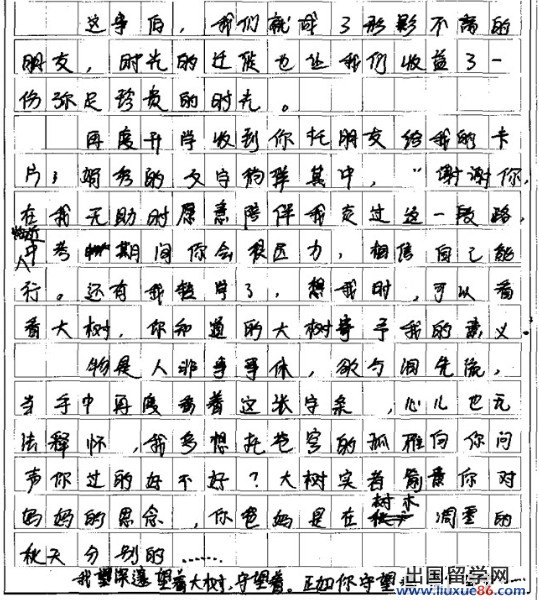 这事后，我们就成了形影不离的
朋友，时光的迁徙也让我们收益了一
份弥足珍贵的时光。
再度升学收到你托朋友给我的卡
片；娟秀的文字徜徉其中，“谢谢你，
在我无助时愿意陪伴我走过这一段路，
中考期间你会很压力，相信自己能
行。还有我转学了，想我时，可以看
看大树，你知道的大树寄予我的意义。
物是人非事事休，欲与泪先流，
当手中再度看着这张字条，心儿也无
法释怀，我多想托苍穹的孤雁向你问
声你过的好不好？大树实着你对
妈妈的思念，你爸妈是在树木凋零的
秋天分别的……
我望深邃望着大树，守望着。正如你守望
出国留学网
www.liuxue86.com